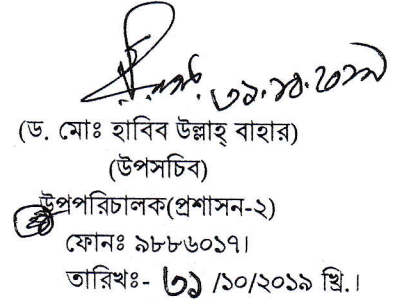 ৩১.১০.২০১৯
(ড. মোঃ হাবিব উল্লাহ্ বাহার)
(উপসচিব)
উপপরিচালক(প্রশাসন-২)
ফোনঃ ৯৮৮৬০১৭।
তারিখঃ- ৩১ /১০/২০১৯ খ্রি.।